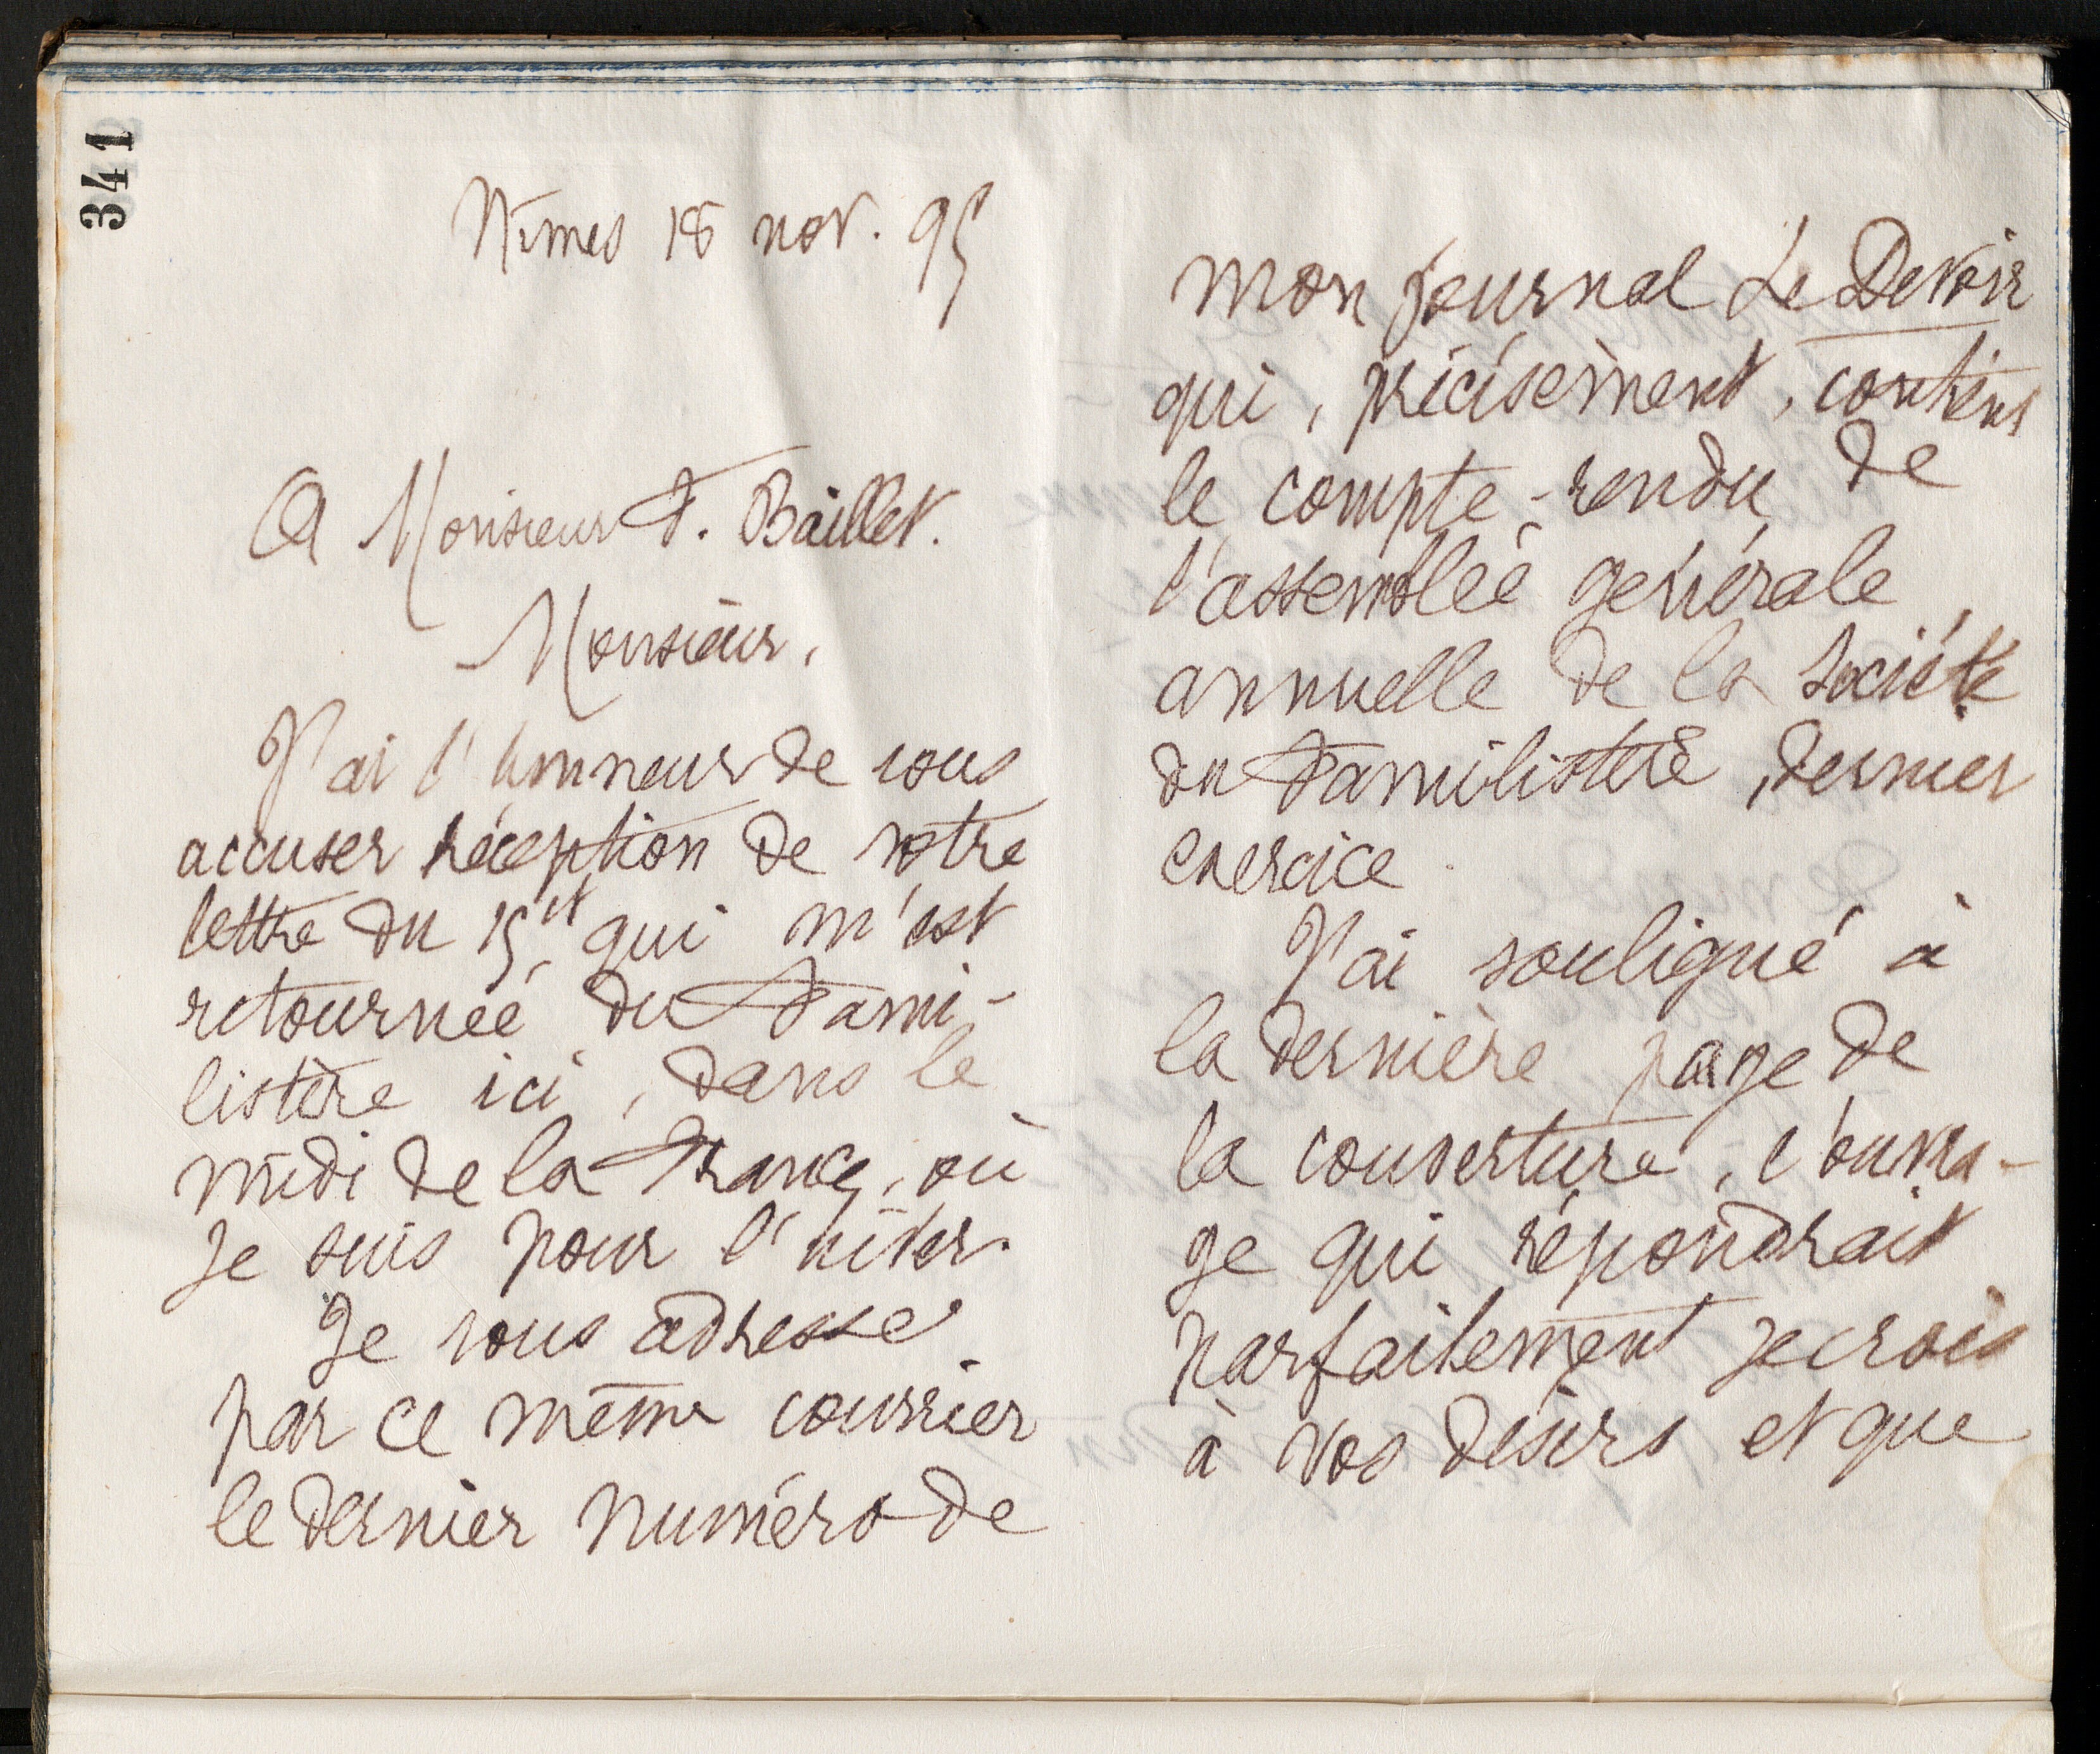 341
Nîmes 18 nov. 95
A Monsieur F. Baillet.
Monsieur,
J'ai l'honneur de vous
accuser réception de votre
lettre du 15 ct, qui m'est
retournée du Fami-
listère ici, dans le
midi de la France, où
je suis pour l'hiver.
Je vous adresse
par ce même courrier
le dernier numéro de
mon journal Le Devoir
qui, précisément, contient
le compte-rendu de
l'assemblée générale
annuelle de la Société
du Familistère, dernier
exercice.
J'ai souligné à
la dernière page de
la couverture, l'ouvra-
ge qui répondrait
parfaitement je crois
à vos désirs et que